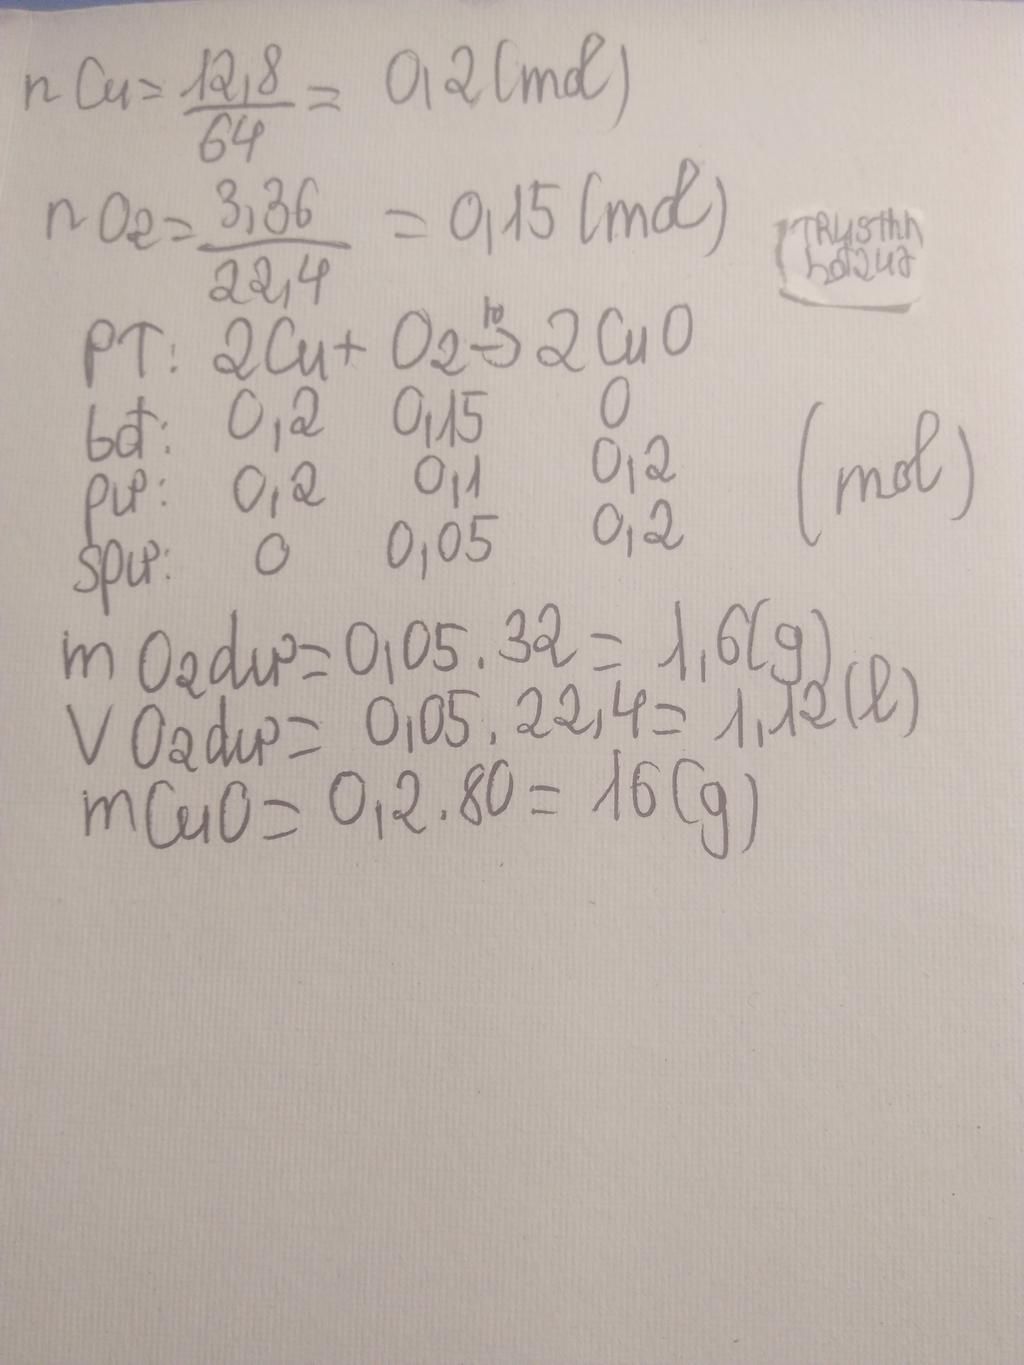 nCu = 12,8/64 = 0,2 (mol)
nO2 = 3,36/22,4 = 0,15 (mol)
PT: 2Cu + O2 →t° 2CuO
bđ: 0,2 0,15 0
pư: 0,2 0,1 0,2 (mol)
spư: 0 0,05 0,2
mO2dư = 0,05.32 = 1,6(g)
VO2dư = 0,05.22,4 = 1,12(l)
mCuO = 0,2.80 = 16(g)